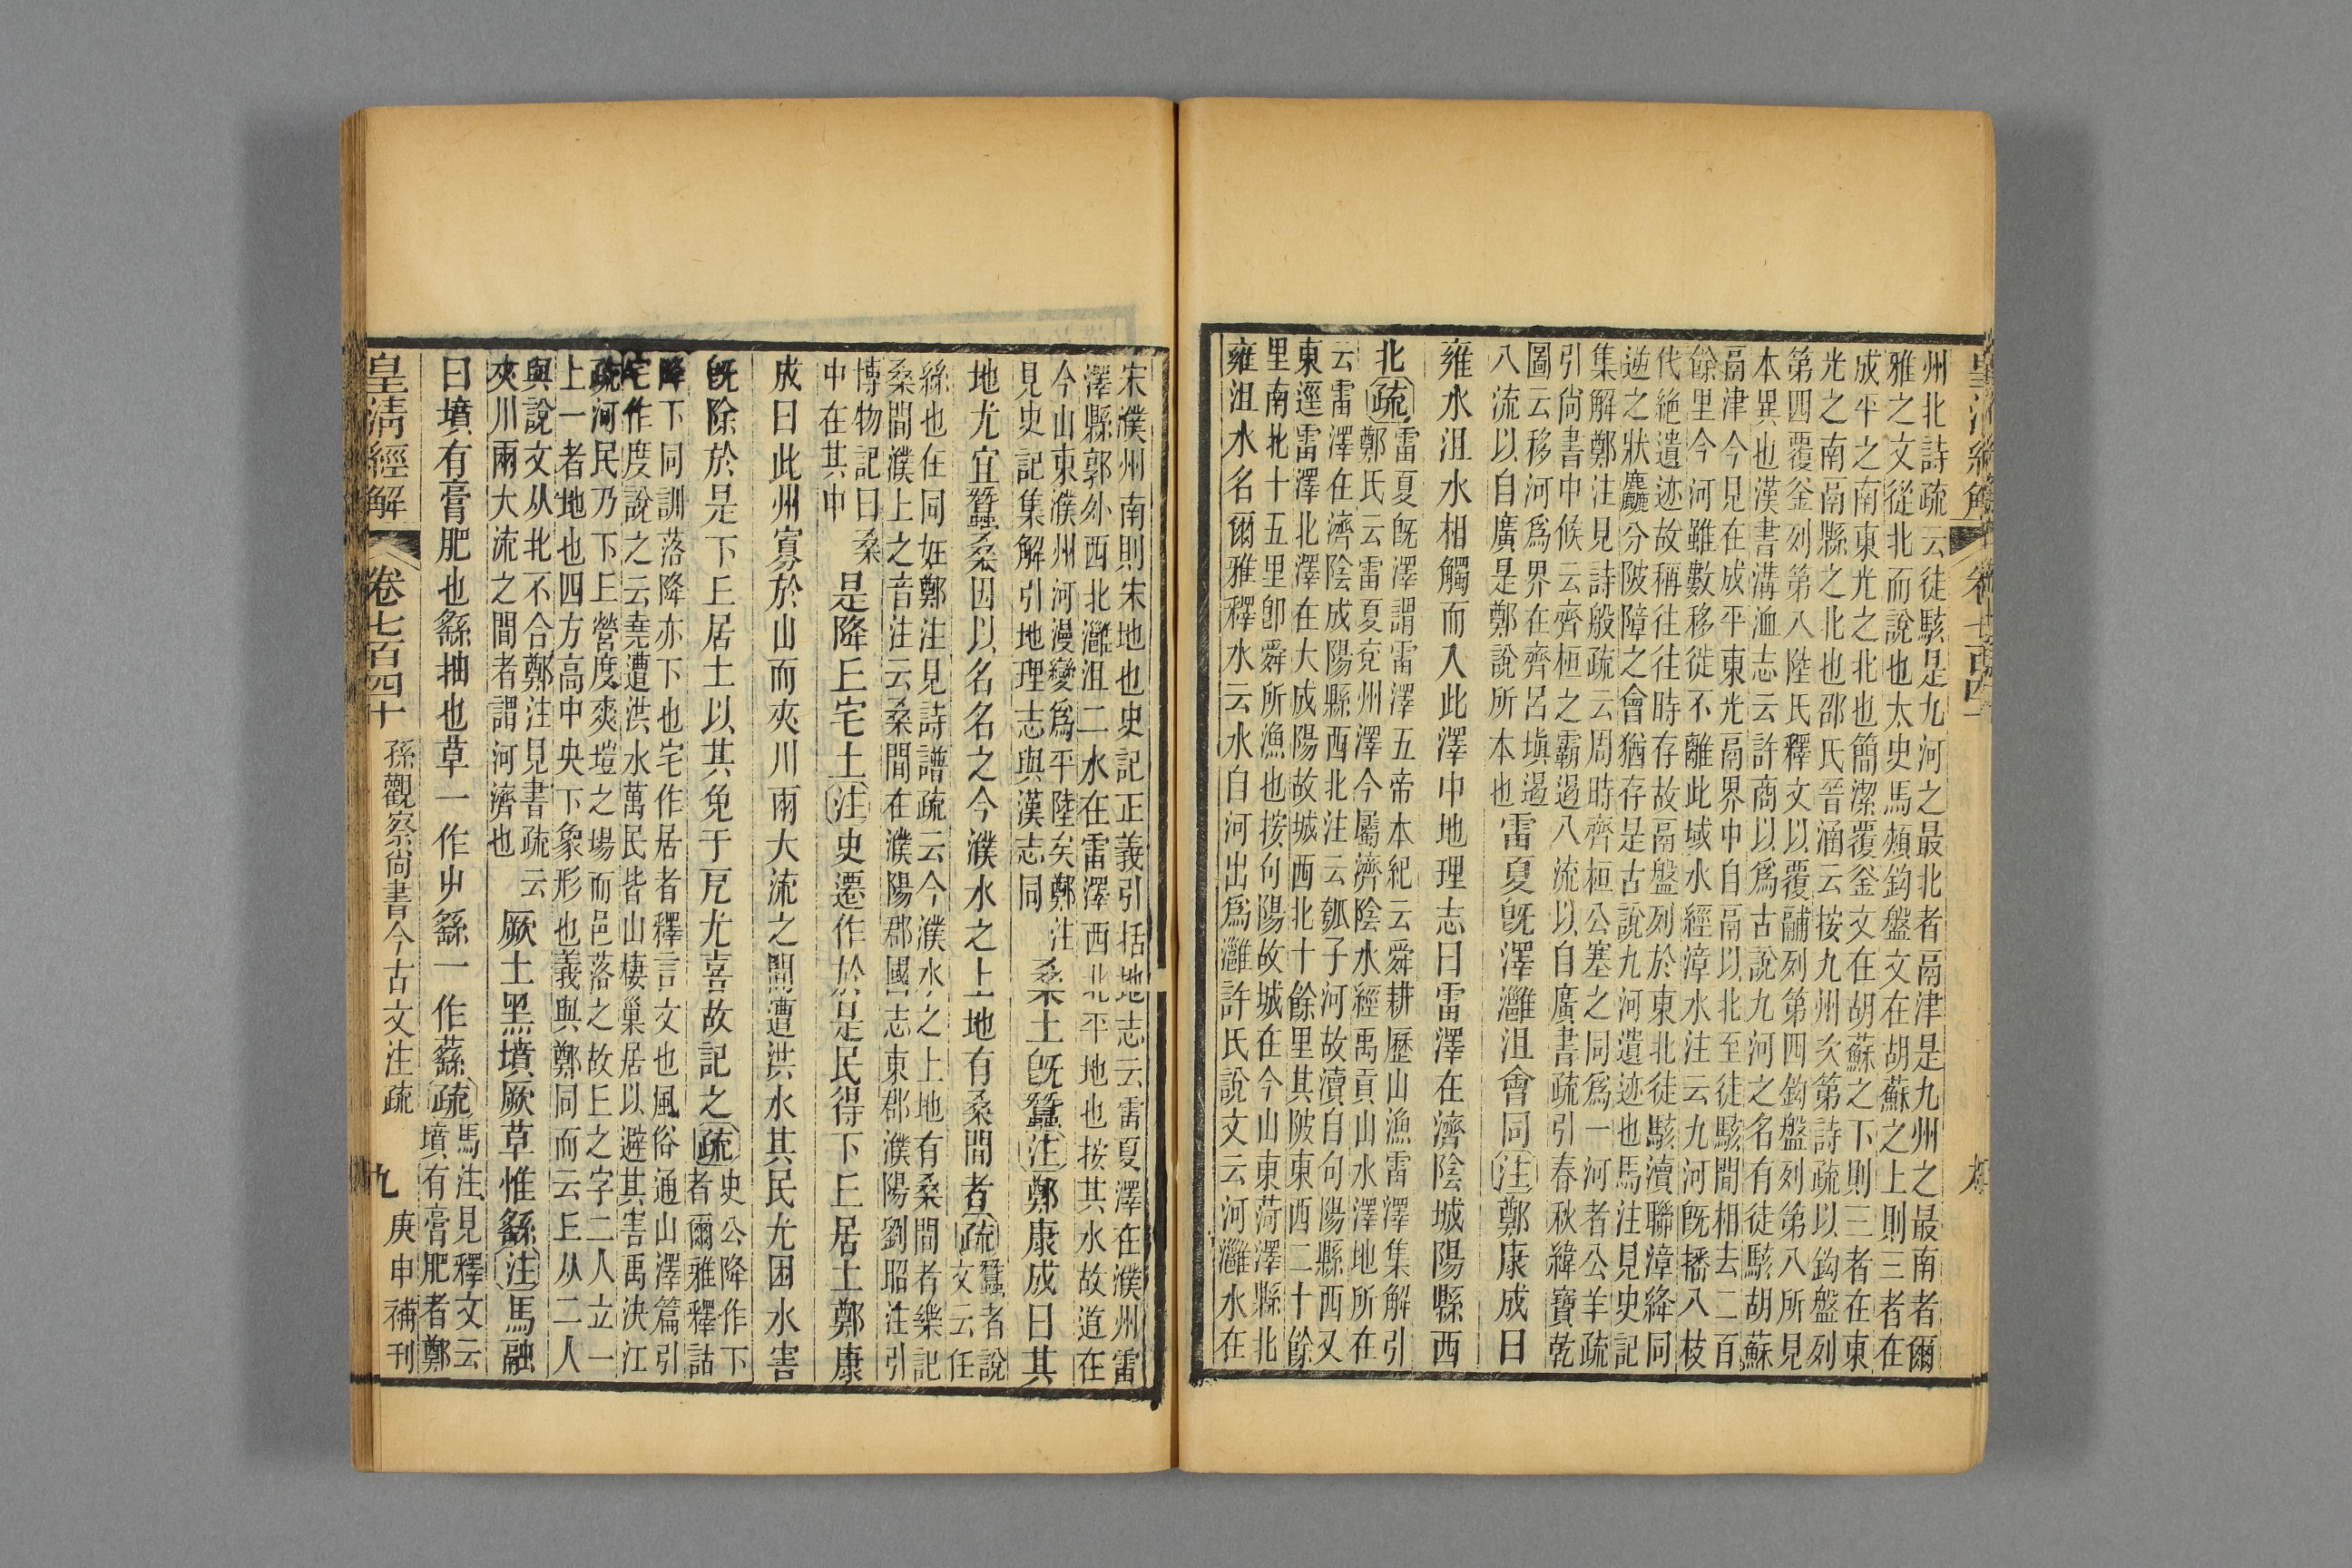 州北詩疏云徒駭是九河之最北者鬲津是九州之最南者爾
雅之文從北而說也太史馬頰鈞盤文在胡蘇之上則三者在
成平之南東光之北也簡潔覆釜文在胡蘇之下則三者在東
光之南鬲縣之北也邵氏晉涵云按九州次第詩疏以鈞盤列
第四覆釜列第八陸氏釋文以覆鬴列第四鈞盤列第八所見
本異也漢書溝洫志云許商以爲古說九河之名有徒駭胡蘇
鬲津今見在成平東光鬲界中自鬲以北至徒駭間相去二百
餘里今河雖數移徙不離此域水經漳水注云九河旣播八枝
代絶遺迹故稱往往時存故鬲盤列於東北徒駭瀆聯漳絳同
逆之狀麤分陂障之會猶存是古說九河遺迹也馬注見史記
集解鄭注見詩般疏云周時齊桓公塞之同爲一河者公羊疏
引尙書中候云齊桓之霸遏八流以自廣書疏引春秋緯寶乾
圖云移河爲界在齊呂塡遏
八流以自廣是鄭說所本也
雷夏旣澤灉沮會同注鄭康成曰
雍水沮水相觸而入此澤中地理志曰雷澤在濟陰城陽縣西
北疏
雷夏旣澤謂雷澤五帝本紀云舜耕歷山漁雷澤集解引
鄭氏云雷夏兗州澤今屬濟陰水經禹貢山水澤地所在
云雷澤在濟陰成陽縣西北注云瓠子河故瀆自句陽縣西又
東逕雷澤北澤在大成陽故城西北十餘里其陂東西二十餘
里南北十五里卽舜所漁也按句陽故城在今山東菏澤縣北
雍沮水名爾雅釋水云水自河出爲灉許氏說文云河灉水在
宋濮州南則宋地也史記正義引括地志云雷夏澤在濮州雷
澤縣郭外西北灉沮二水在雷澤西北平地也按其水故道在
今山東濮州河漫變爲平陸矣鄭注
見史記集解引地理志與漢志同
桑土旣蠶注鄭康成曰其
地尤宜蠶桑因以名名之今濮水之上地有桑間者疏
蠶者說
文云任
絲也任同妊鄭注見詩譜疏云今濮水之上地有桑間者樂記
桑間濮上之音注云桑間在濮陽郡國志東郡濮陽劉昭注引
博物記曰桑
中在其中
是降丘宅土注史遷作於是民得下丘居土鄭康
成曰此州寡於山而夾川兩大流之間遭洪水其民尤困水害
旣除於是下丘居土以其免于厄尤喜故記之疏
史公降作下
者爾雅釋詁
降下同訓落降亦下也宅作居者釋言文也風俗通山澤篇引
宅作度說之云堯遭洪水萬民皆山棲巢居以避其害禹決江
疏河民乃下丘營度爽塏之場而邑落之故丘之字二人立一
上一者地也四方高中央下象形也義與鄭同而云丘从二人
與說文从北不合鄭注見書疏云
夾川兩大流之間者謂河濟也
厥土黑墳厥草惟繇注馬融
曰墳有膏肥也繇抽也草一作屮繇一作蘨疏
馬注見釋文云
墳有膏肥者鄭
皇清經解
卷七百四十
孫觀察尙書今古文注疏
九
庚申補刊